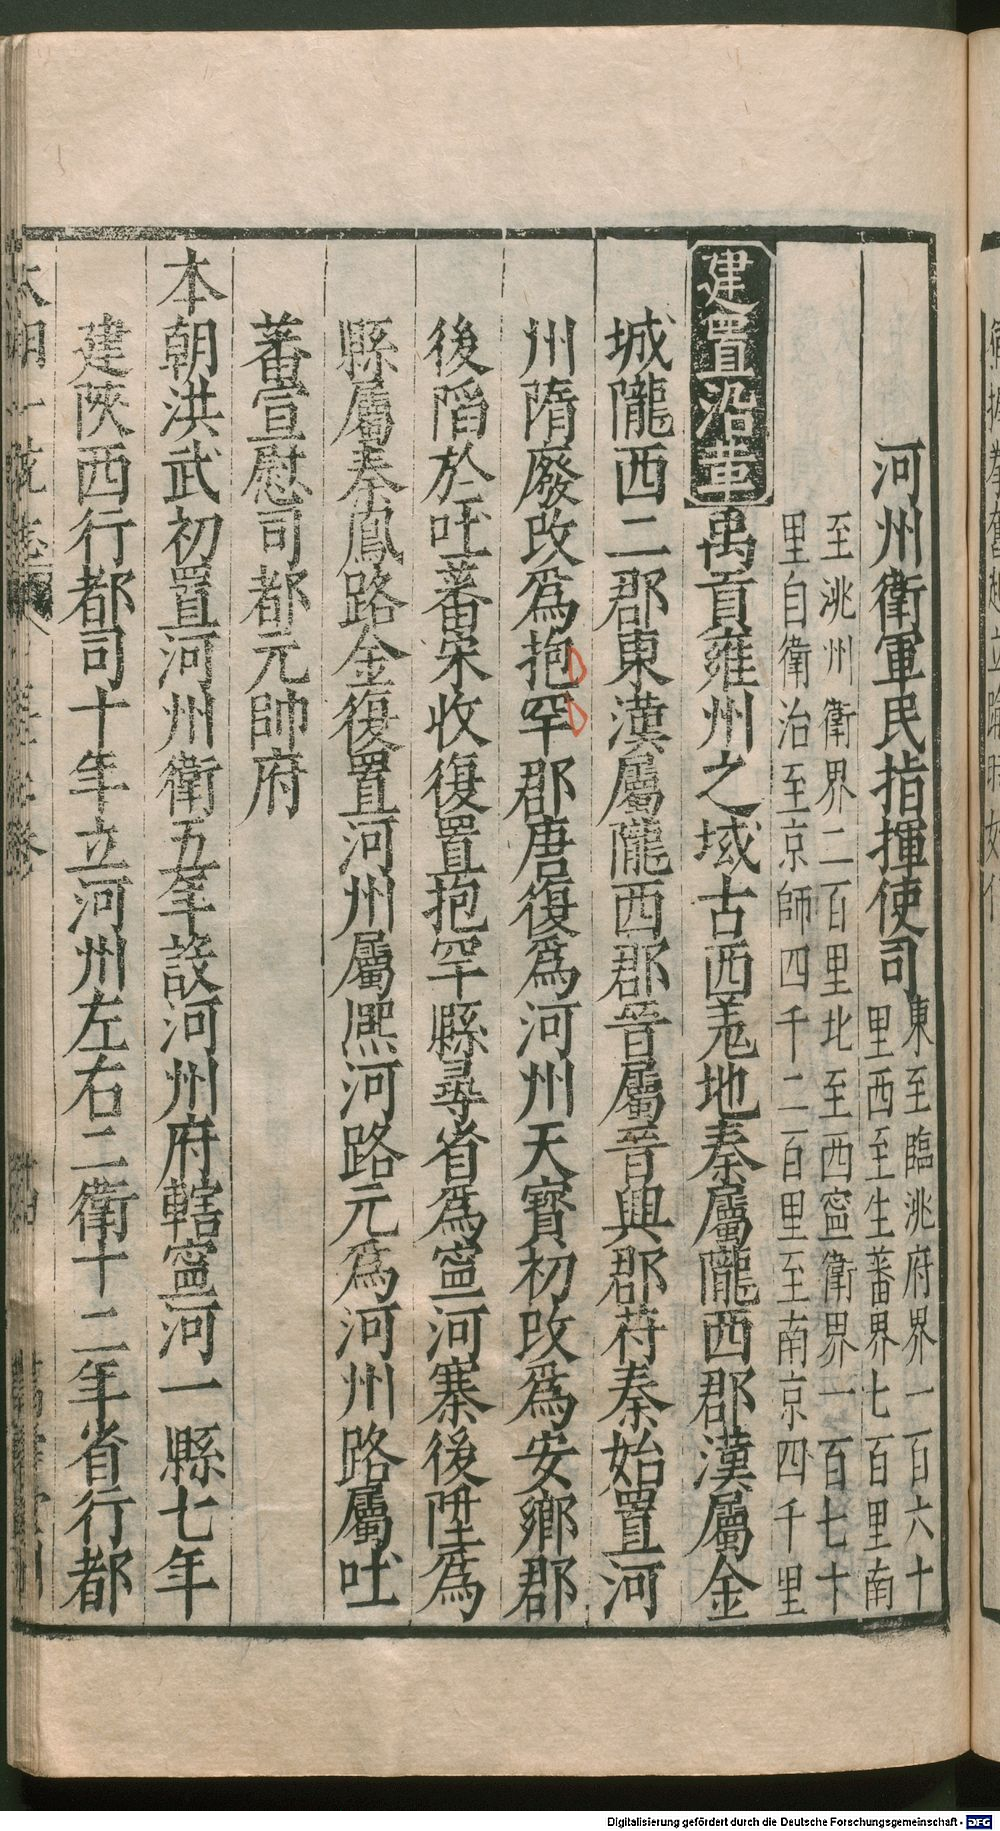 河州衛軍民指揮使司東至臨洮府界一百六十
里西至生蕃界七百里南
至洮州衛界二百里北至西寧衛界一百七十
里自衛治至京師四千二百里至南京四千里
建置沿革禹貢雍州之域古西羌地秦屬隴西郡漢屬金
城隴西二郡東漢屬隴西郡晉屬晉興郡苻秦始置河
州隋廢改爲抱罕郡唐復爲河州天寳初改爲安鄉郡
後陷於吐蕃宋收復置抱罕縣尋省爲寧河寨後陞爲
縣屬秦鳳路金復置河州屬熈河路元爲河州路屬吐
蕃宣慰司都元帥府
本朝洪武初置河州衛五年設河州府轄寧河一縣七年
建陜西行都司十年立河州左右二衛十二年省行都
Digitalisierung gefördert durch die Deutsche Forschungsgemeinschaft - DFG